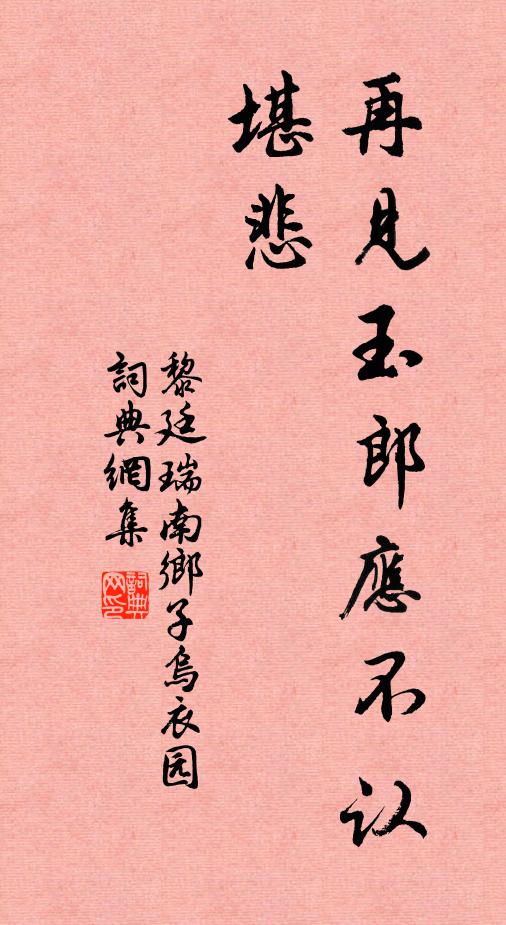 再見玉郎應不认
堪悲
黎廷瑞南鄉子烏衣园
詞典網集
詞典網印